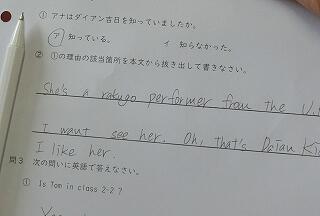 ① アナはダイアン吉日を知っていましたか。
ア 知っている。 イ 知らなかった。
② ①の理由の該当箇所を本文から抜き出して書きなさい。
She's a rakugo performer from the U.
I want see her. Oh, that's Daian Ki
I like her.
問3 次の問いに英語で答えなさい。
① Is Tom in class 2-2?